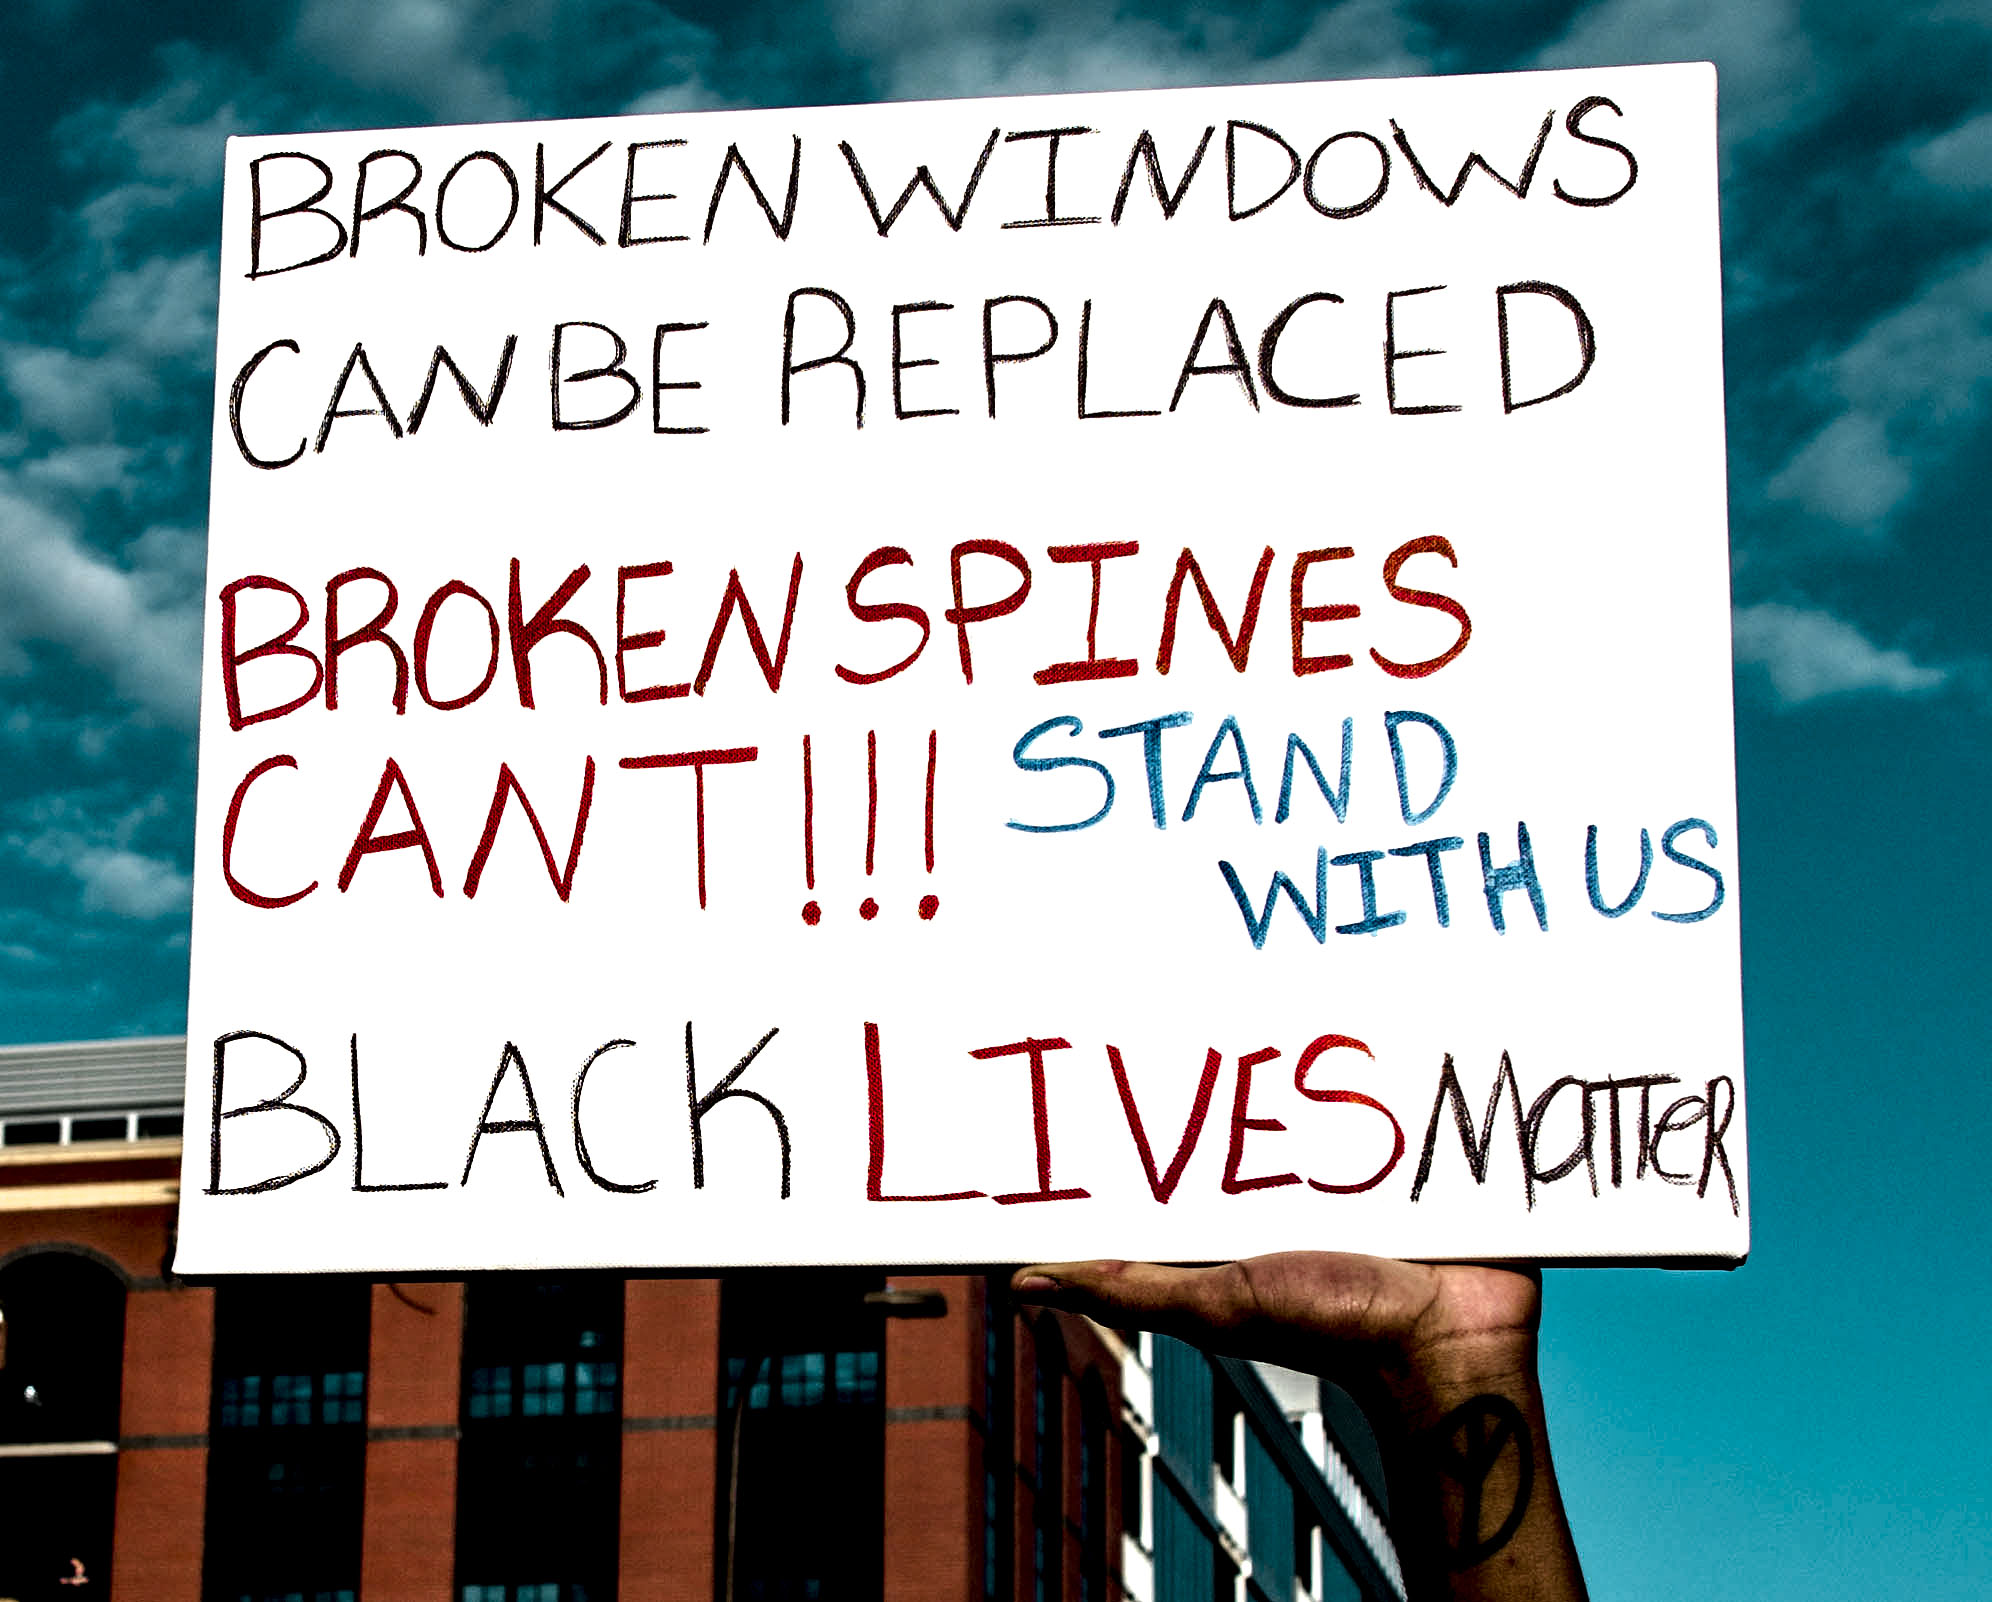 BROKEN WINDOWS
CAN BE REPLACED
BROKEN SPINES
CANT!!! STAND
WITH US
BLACK LIVES MATTER